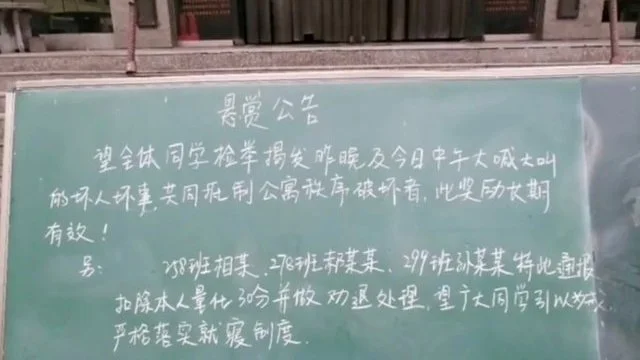 悬赏公告
望全体同学检举揭发昨晚及今日中午大喊大叫
的坏人坏事,共同抵制公寓秩序破坏者,此奖励长期
有效!
另: 258班相某、278班郝某某、299班孙某某特此通报
扣除本人量化30分并做劝退处理,望广大同学引以为戒,
严格落实就寝制度.